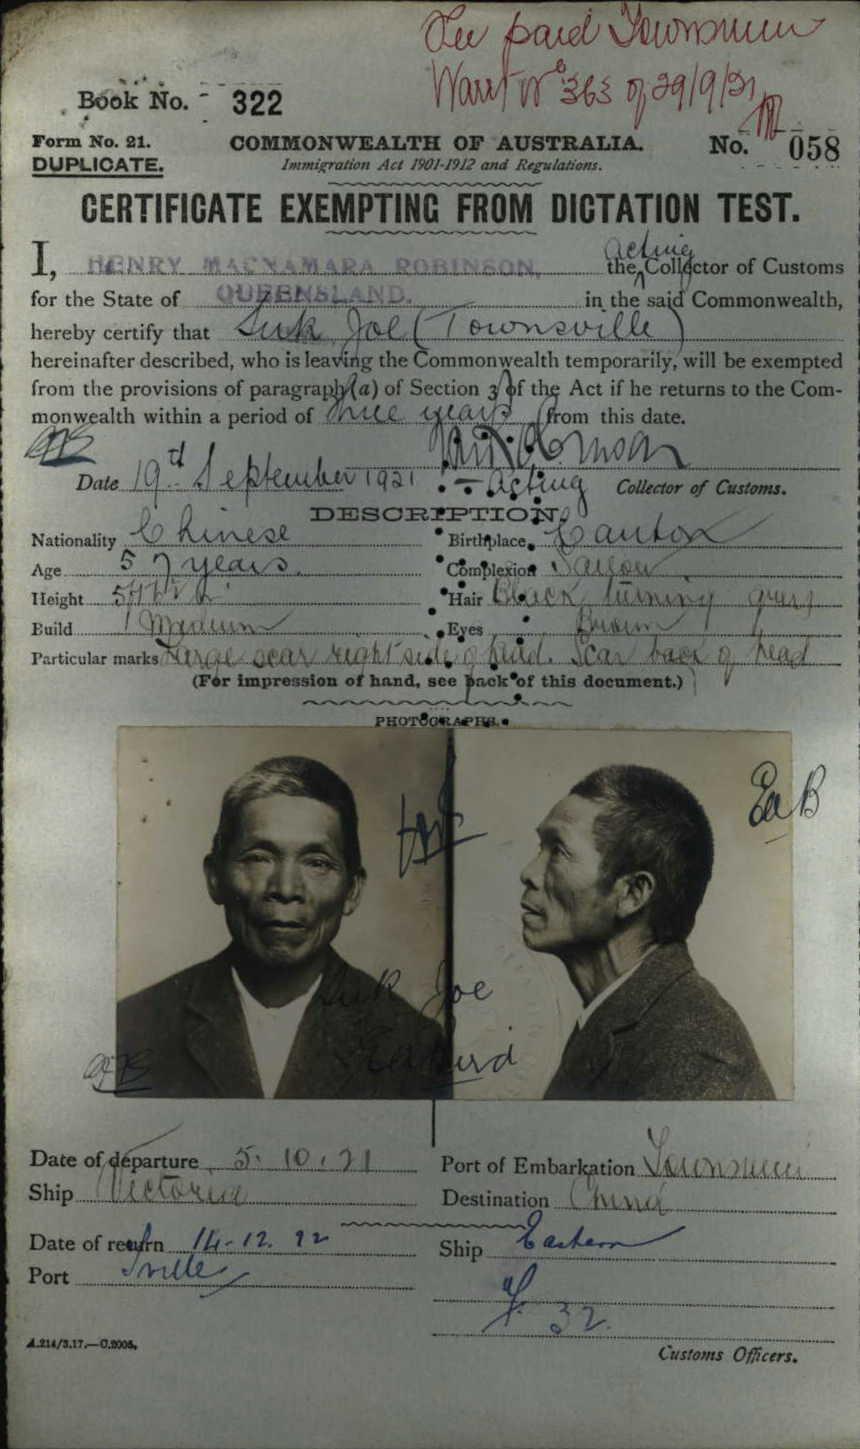 Fee paid Townsville
Warrt No 363 of 29/9/21
Book No. - 322
Form No. 21.
DUPLICATE.
COMMONWEALTH OF AUSTRALIA.
Immigration Act 1901-1912 and Regulations.
No. 058
CERTIFICATE EXEMPTING FROM DICTATION TEST.
acting
I, HENRY MACNAMARA ROBINSON, the Collector of Customs
for the State of QUEENSLAND. in the said Commonwealth,
hereby certify that Suk Joe (Townsville)
hereinafter described, who is leaving the Commonwealth temporarily, will be exempted
from the provisions of paragraph (a) of Section 3 of the Act if he returns to the Com-
monwealth within a period of three years from this date.
Date 19th September 1921 Acting Collector of Customs.
DESCRIPTION.
Nationality Chinese Birthplace Canton
Age 57 years Complexion Sallow
Height Hair Black turning grey
Build Medium Eyes Brown
Particular marks Large scar right side of head. Scar back of head
(For impression of hand, see back of this document.)
PHOTOGRAPHS.
EaB
Suk Joe
Ea Bird
Date of departure 5.10.21 Port of Embarkation Townsville
Ship Victoria Destination China
Date of return 14-12.22 Ship Eastern
Port Tville
32.
A.214/3.17.—C.2005.
Customs Officers.